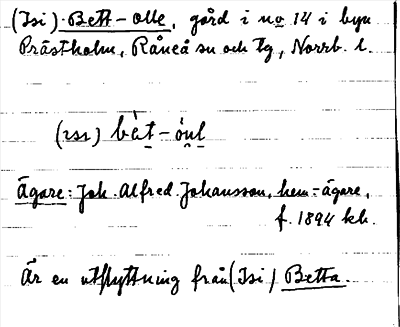 (Isi) Bett-Olle, gård i no 14 i byn
Prästholm, Råneå sn och tg, Norrb. l.
bèt-óul
Ägare: Joh. Alfred Johansson, hem.-ägare,
f. 1894 kh.
Är en utflyttning från (Isi) Betta.